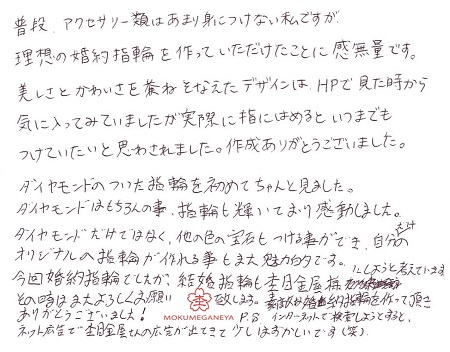 普段、アクセサリー類はあまり身につけない私ですが
理想の婚約指輪を作っていただけたことに感無量です。
美しさとかわいさを兼ねそなえたデザインは、HPで見た時から
気に入ってみていましたが実際に指にはめるといつまでも
つけていたいと思わされました。作成ありがとうございました。
ダイヤモンドのついた指輪を初めてちゃんと見ました。
ダイヤモンドはもちろんの事、指輪も輝いており感動しました。
ダイヤモンドだけではなく、他の色の宝石もつける事ができ、自分の
オリジナルの指輪が作れる事もまた魅力的です。
今回婚約指輪でしたが、結婚指輪も杢目金屋様にしようと考えています
その時はまたよろしくお願い致します。婚約指輪を作って頂き
ありがとうございました!
MOKUMEGANEYA
P.S インターネットで検索しようとすると、
ネット広告で杢目金屋さんの広告が出てきて少しはずかしいです(笑).